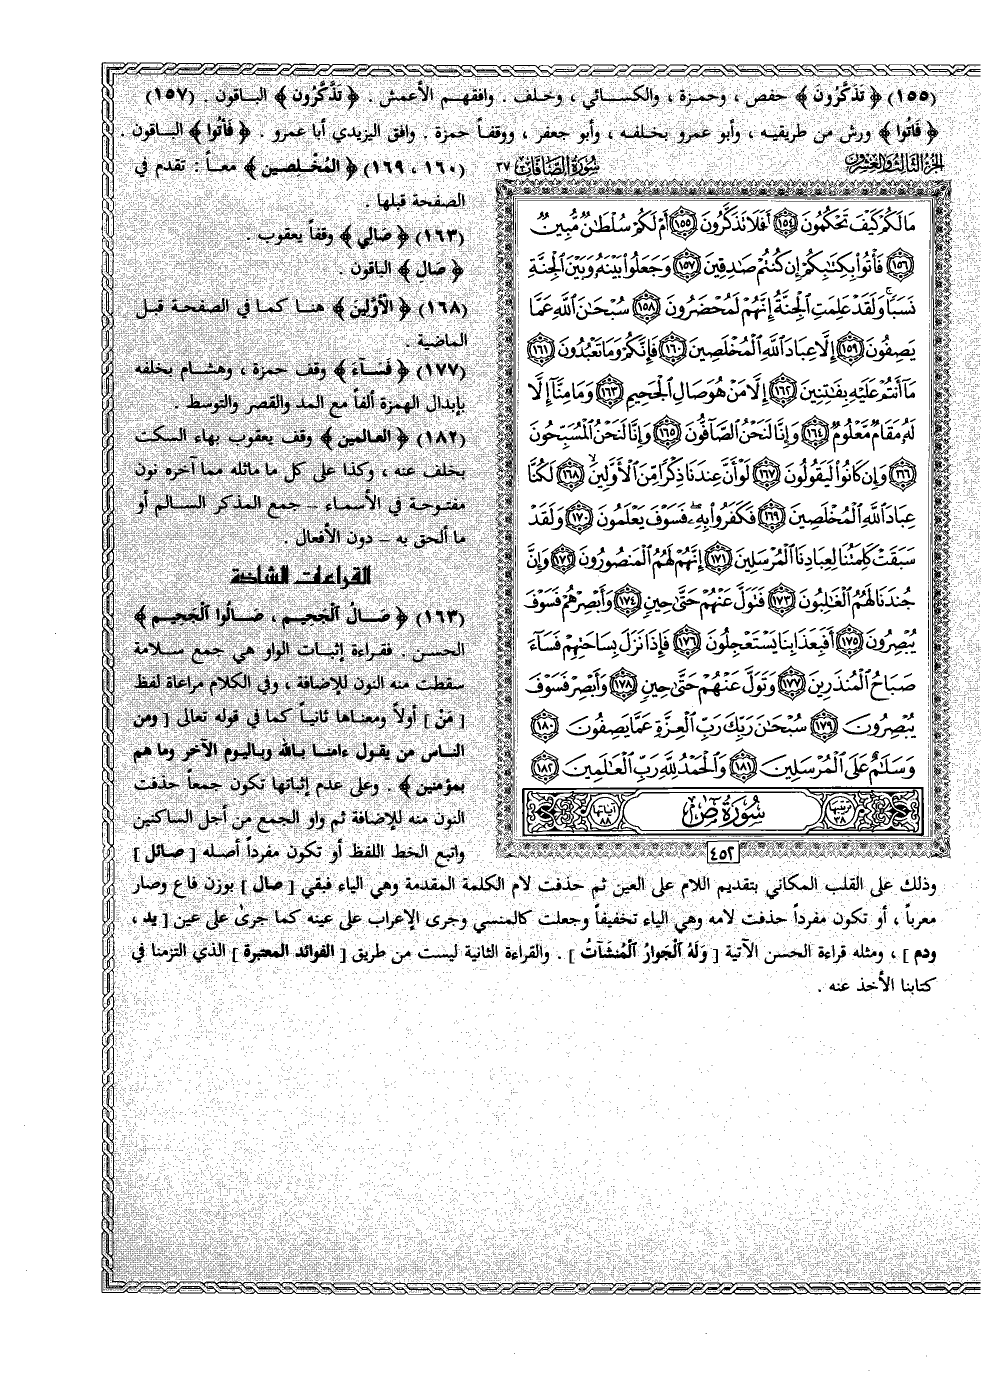 (١٥٥) ﴿ تَذَكَّرُونَ ﴾ حفص ، وحمزة ، والكسائي ، وخلف . وافقهم الأعمش . ﴿ تَذَّكَّرُونَ ﴾ الباقون . (١٥٧)
﴿ فَاتُوا ﴾ ورش من طريقيه ، وأبو عمرو بخلفه ، وأبو جعفر ، ووقفاً حمزة . وافق اليزيدي أبا عمرو . ﴿ فَأْتُوا ﴾ الباقون .
الجزء الثالث والعشرون
سورة الصافات ٣٧
مَا لَكُمْ كَيْفَ تَحْكُمُونَ ١٥٤ أَفَلَا تَذَكَّرُونَ ١٥٥ أَمْ لَكُمْ سُلْطَانٌ مُّبِينٌ
١٥٦ فَأْتُوا بِكِتَابِكُمْ إِن كُنتُمْ صَادِقِينَ ١٥٧ وَجَعَلُوا بَيْنَهُ وَبَيْنَ الْجِنَّةِ
نَسَبًا ۚ وَلَقَدْ عَلِمَتِ الْجِنَّةُ إِنَّهُمْ لَمُحْضَرُونَ ١٥٨ سُبْحَانَ اللَّهِ عَمَّا
يَصِفُونَ ١٥٩ إِلَّا عِبَادَ اللَّهِ الْمُخْلَصِينَ ١٦٠ فَإِنَّكُمْ وَمَا تَعْبُدُونَ ١٦١
مَا أَنتُمْ عَلَيْهِ بِفَاتِنِينَ ١٦٢ إِلَّا مَنْ هُوَ صَالِ الْجَحِيمِ ١٦٣ وَمَا مِنَّا إِلَّا
لَهُ مَقَامٌ مَّعْلُومٌ ١٦٤ وَإِنَّا لَنَحْنُ الصَّافُّونَ ١٦٥ وَإِنَّا لَنَحْنُ الْمُسَبِّحُونَ
١٦٦ وَإِن كَانُوا لَيَقُولُونَ ١٦٧ لَوْ أَنَّ عِندَنَا ذِكْرًا مِّنَ الْأَوَّلِينَ ١٦٨ لَكُنَّا
عِبَادَ اللَّهِ الْمُخْلَصِينَ ١٦٩ فَكَفَرُوا بِهِ ۖ فَسَوْفَ يَعْلَمُونَ ١٧٠ وَلَقَدْ
سَبَقَتْ كَلِمَتُنَا لِعِبَادِنَا الْمُرْسَلِينَ ١٧١ إِنَّهُمْ لَهُمُ الْمَنصُورُونَ ١٧٢ وَإِنَّ
جُندَنَا لَهُمُ الْغَالِبُونَ ١٧٣ فَتَوَلَّ عَنْهُمْ حَتَّىٰ حِينٍ ١٧٤ وَأَبْصِرْهُمْ فَسَوْفَ
يُبْصِرُونَ ١٧٥ أَفَبِعَذَابِنَا يَسْتَعْجِلُونَ ١٧٦ فَإِذَا نَزَلَ بِسَاحَتِهِمْ فَسَاءَ
صَبَاحُ الْمُنذَرِينَ ١٧٧ وَتَوَلَّ عَنْهُمْ حَتَّىٰ حِينٍ ١٧٨ وَأَبْصِرْ فَسَوْفَ
يُبْصِرُونَ ١٧٩ سُبْحَانَ رَبِّكَ رَبِّ الْعِزَّةِ عَمَّا يَصِفُونَ ١٨٠
وَسَلَامٌ عَلَى الْمُرْسَلِينَ ١٨١ وَالْحَمْدُ لِلَّهِ رَبِّ الْعَالَمِينَ ١٨٢
ترتيبها ٣٨ سُورَةُ صٓ آياتها ٨٨
٤٥٢
(١٦٠ ، ١٦٩) ﴿ المُخْلِصين ﴾ معاً : تقدم في
الصفحة قبلها .
(١٦٣) ﴿ صَالِي ﴾ وقفاً يعقوب .
﴿ صَالِ ﴾ الباقون .
(١٦٨) ﴿ الأَوَّلِينَ ﴾ هنا كما في الصفحة قبل
الماضية .
(١٧٧) ﴿ فَسَآءَ ﴾ وقف حمزة ، وهشام بخلفه
بإبدال الهمزة ألفاً مع المد والقصر والتوسط .
(١٨٢) ﴿ العالمين ﴾ وقف يعقوب بهاء السكت
بخلف عنه ، وكذا على كل ما ماثله مما آخره نون
مفتوحة في الأسماء – جمع المذكر السالم أو
ما ألحق به – دون الأفعال .
القراءات الشاذة
(١٦٣) ﴿ صَالُ الْجَحِيمِ ، صَالُوا الْجَحِيمِ ﴾
الحسن . فقراءة إثبات الواو هي جمع سلامة
سقطت منه النون للإضافة ، وفي الكلام مراعاة لفظ
[ مَنْ ] أولاً ومعناها ثانياً كما في قوله تعالى [ ومن
الناس من يقول ءامنا بالله وباليوم الآخر وما هم
بمؤمنين ﴾ . وعلى عدم إثباتها تكون جمعاً حذفت
النون منه للإضافة ثم واو الجمع من أجل الساكنين
واتبع الخط اللفظ أو تكون مفرداً أصله [ صائل ]
وذلك على القلب المكاني بتقديم اللام على العين ثم حذفت لام الكلمة المقدمة وهي الياء فبقي [ صال ] بوزن فاع وصار
معرباً ، أو تكون مفرداً حذفت لامه وهي الياء تخفيفاً وجعلت كالمنسي وجرى الإعراب على عينه كما جرىٰ على عين [ يد ،
ودم ] ، ومثله قراءة الحسن الآتية [ وَلَهُ الْجَوارُ الْمُنشَآتُ ] . والقراءة الثانية ليست من طريق [ الفوائد المعتبرة ] الذي التزمنا في
كتابنا الأخذ عنه .